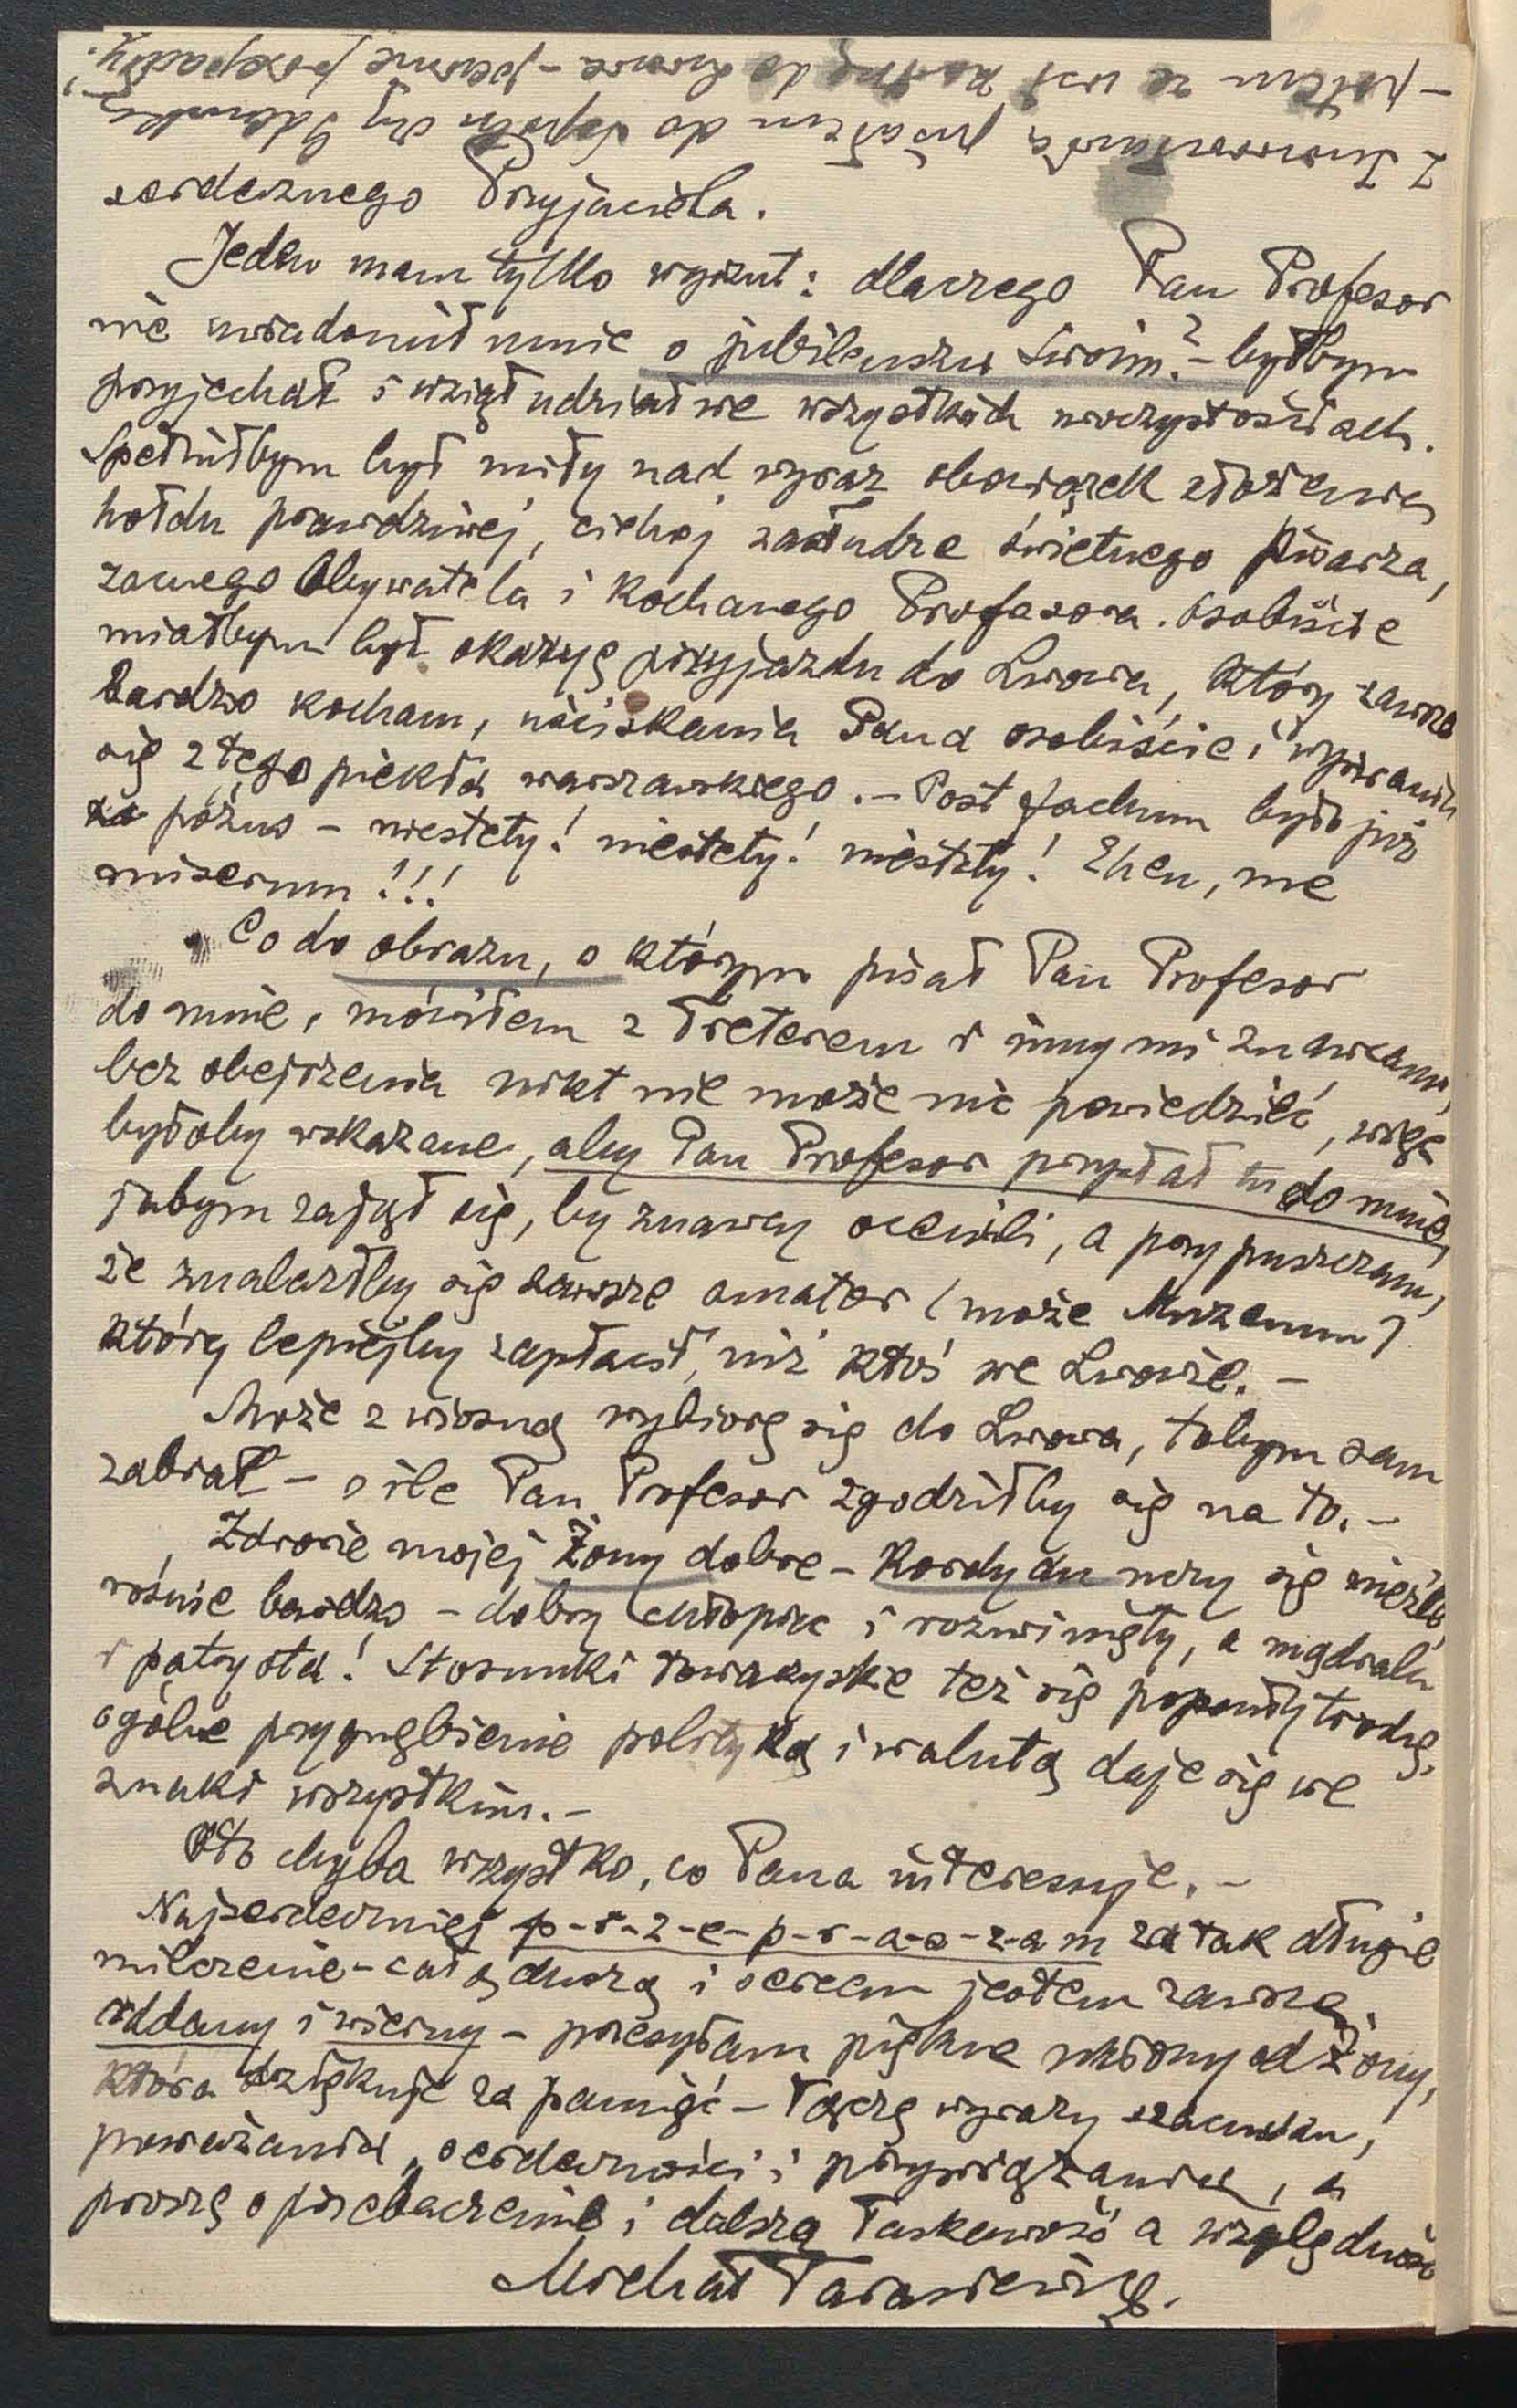 Z Inowrocławia pisałem do
– potem ze wsi kartkę do Lwowa – pewnie przepadły!
serdecznego Przyjaciela.
Jeden mam tylko wyrzut: dlaczego Pan Profesor
nie uwiadomił mnie o jubileuszu swoim? – byłbym
przyjechał i wziął udział we wszystkich uroczystościach.
Spełniłbym był miły nad wyraz obowiązek złożenia
hołdu prawdziwej, cichej zasłudze świetnego pisarza,
zacnego Obywatela i Kochanego Profesora. Osobiście
miałbym był okazyę przyjazdu do Lwowa, który zawsze
bardzo kocham, uściskania Pana osobiście i wyrwania
się z tego piekła warszawskiego. – Post factum było już
za późno – niestety! niestety! niestety! Eheu, me
miserum!!!
Co do obrazu, o którym pisał Pan Profesor
do mnie, mówiłem z Treterem i innymi znawcami,
bez obejrzenia nikt nie może nic powiedzieć, więc
byłoby wskazane, aby Pan Profesor przysłał tu do mnie,
jabym zajął się, by znawcy ocenili, a przypuszczam,
że znalazłby się zawsze amator (może Muzeum)
który lepiejby zapłacił, niż ktoś we Lwowie. –
Może z wiosną wybiorę się do Lwowa, tobym sam
zabrał – o ile Pan Profesor zgodziłby się na to. –
Zdrowie mojej Żony dobre – Kordyan uczy się nieźle,
rośnie bardzo – dobry chłopiec i rozwinięty, a migdalu
i patrysta! Stosunki towarzyskie też się popsuły trochę,
ogólne przygnębienie polityką i walutą daje się we
znaki wszystkim. –
Oto chyba wszystko, co Pana interesuje. –
Najserdeczniej p-r-z-e-p-r-a-s-z-a-m za tak długie
milczenie – całą duszą i sercem jestem zawsze
oddany i wierny – przesyłam piękne ukłony od Żony,
która dziękuje za pamięć – łączę wyrazy szacunku,
poważania, serdeczności i przywiązania, a
proszę o przebaczenie i dalszą łaskawość a względność
Michał Tarasiewicz.